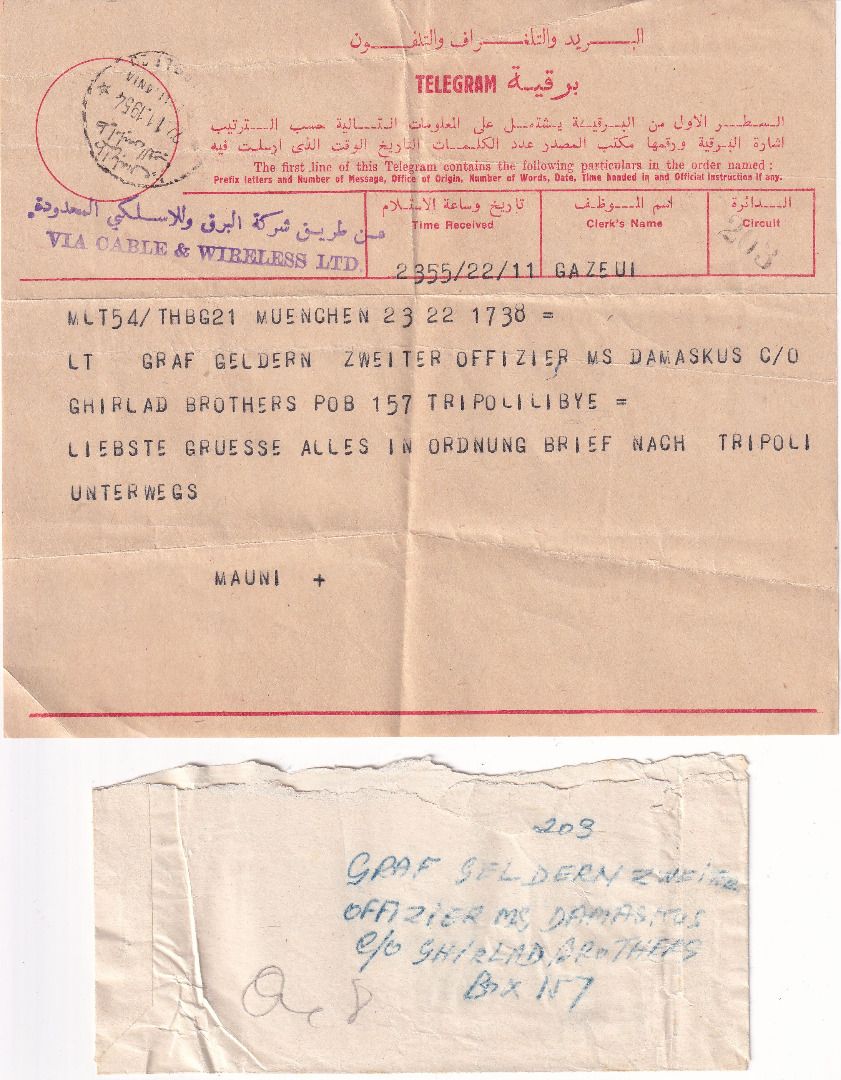 البريد والتلغراف والتلفون
TELEGRAM برقية
السطر الاول من البرقية يشتمل على المعلومات التالية حسب الترتيب
اشارة البرقية ورقمها مكتب المصدر عدد الكلمات التاريخ الوقت الذى ارسلت فيه
The first line of this Telegram contains the following particulars in the order named :
Prefix letters and Number of Message, Office of Origin, Number of Words, Date, Time handed in and Official Instruction if any.
11.1954
من طريق شركة البرق واللاسلكي المحدودة.
VIA CABLE & WIRELESS LTD.
تاريخ وساعة الاستلام
Time Received
2355/22/11
اسم الموظف
Clerk's Name
GAZEUI
الدائرة
Circuit
203
MLT54/THBG21 MUENCHEN 23 22 1738 =
LT GRAF GELDERN ZWEITER OFFIZIER MS DAMASKUS C/O
GHIRLAD BROTHERS POB 157 TRIPOLILIBYE =
LIEBSTE GRUESSE ALLES IN ORDNUNG BRIEF NACH TRIPOLI
UNTERWEGS
MAUNI +
203
GRAF GELDERN ZWEITER
OFFIZIER MS DAMASKUS
C/O GHIRLAD BROTHERS
Box 157